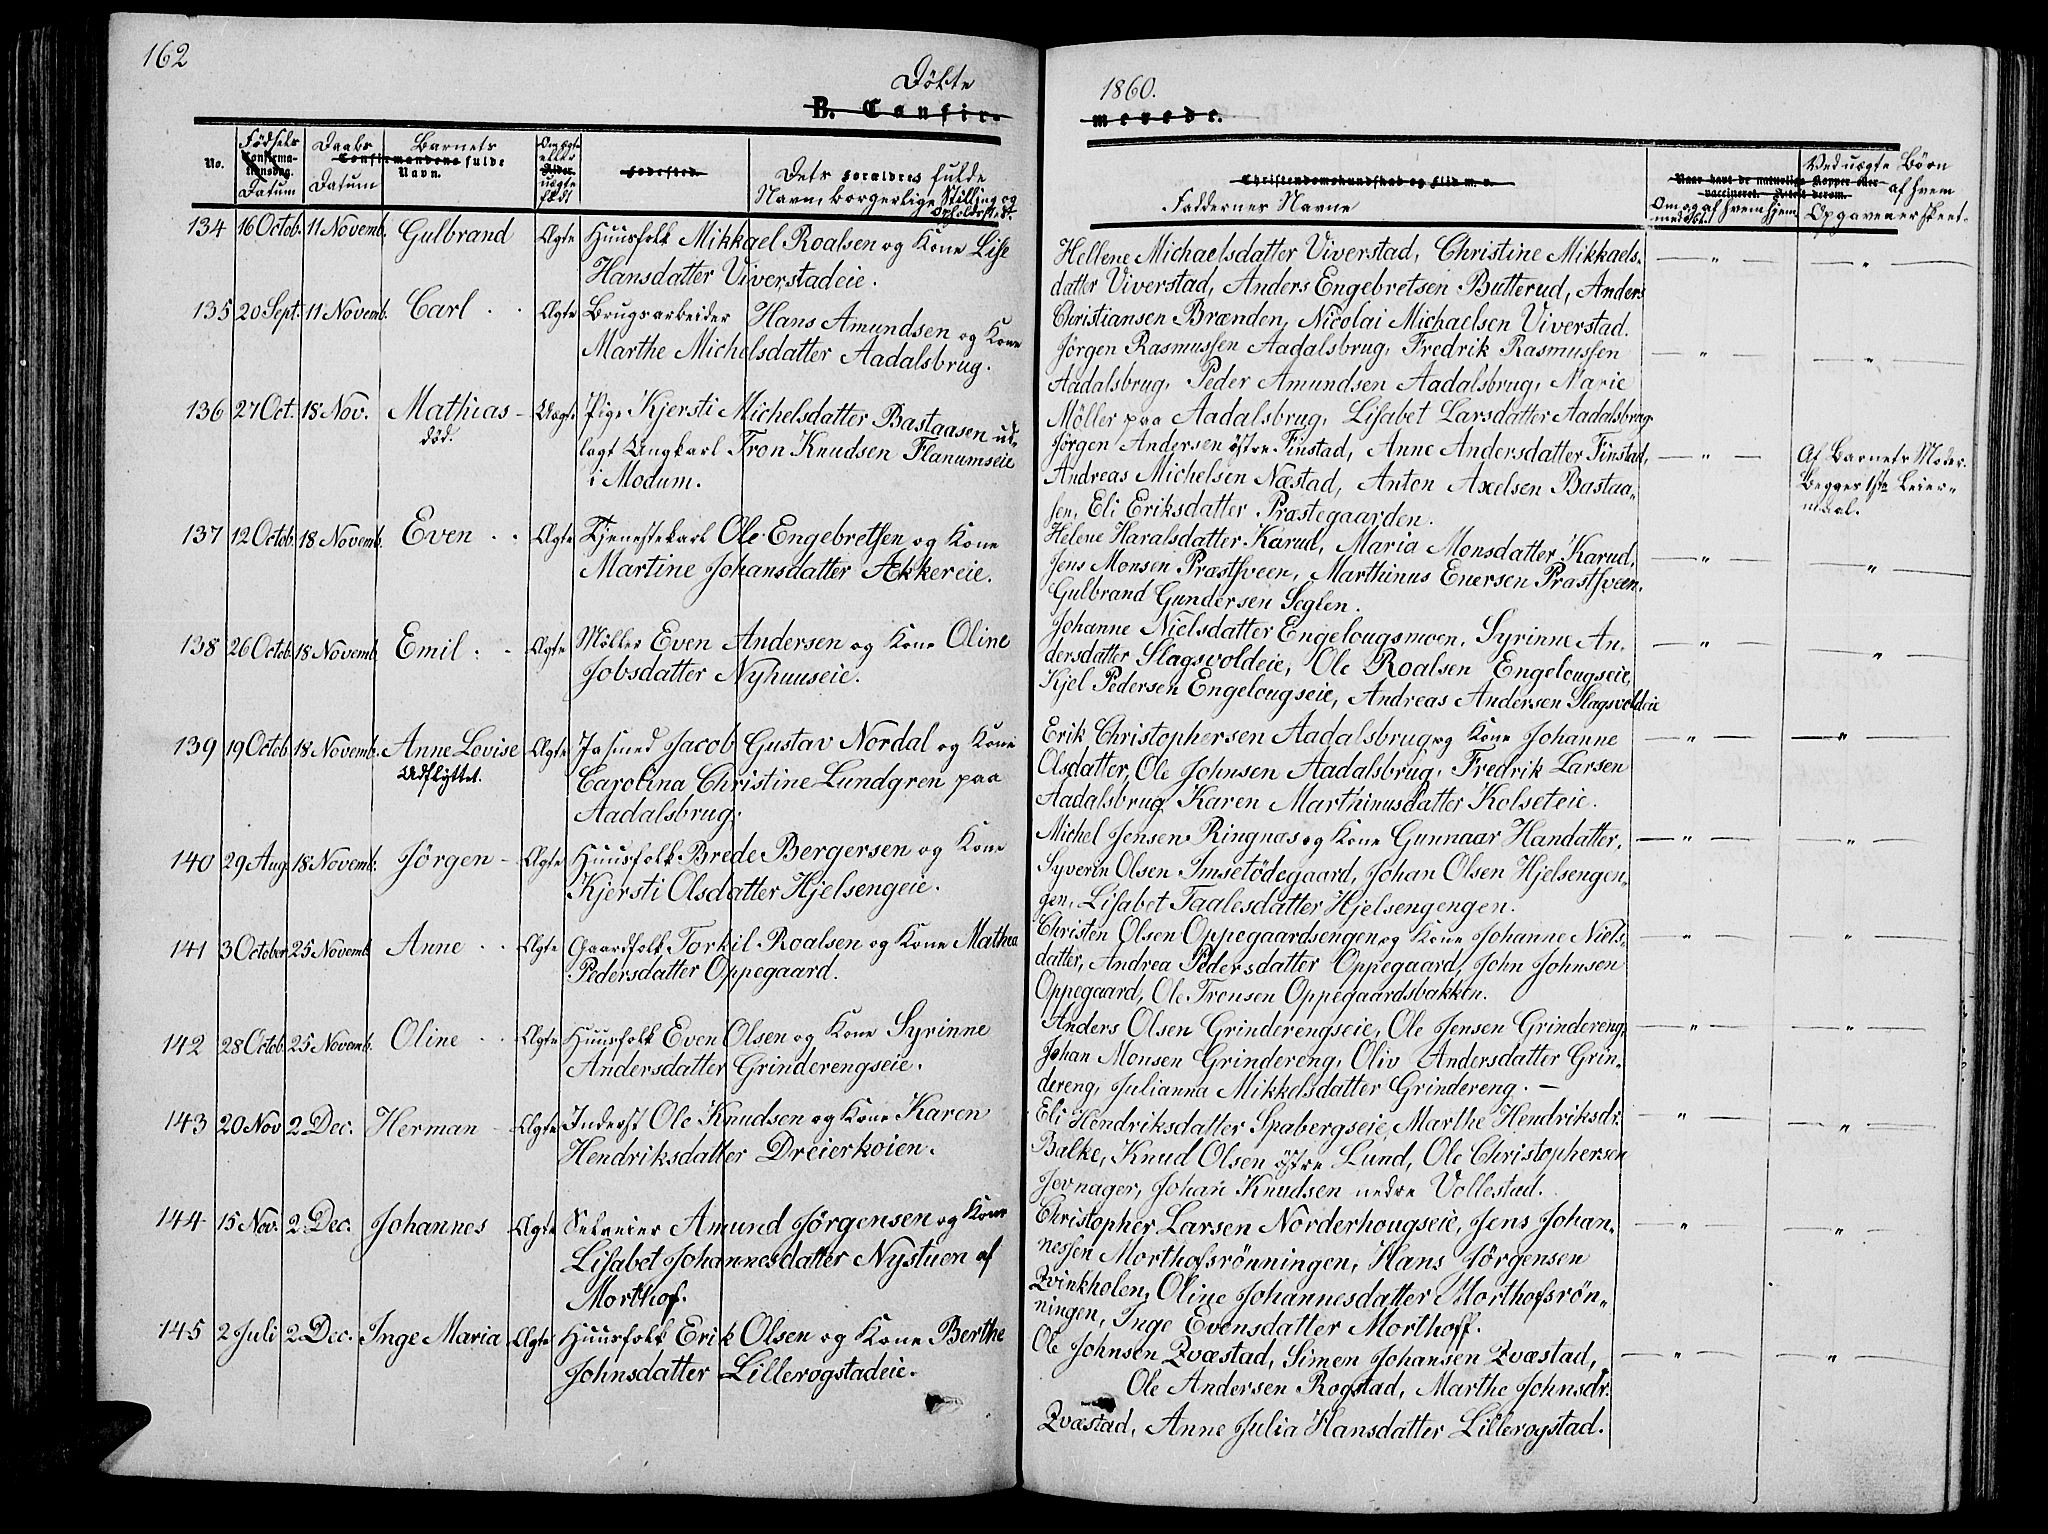 162
Döbte
1860.
B. Confir-
merede.
No.
Födsels
Confirma-
tionsdag.
Datum
Daabs
Datum
Barnets
Confirmandens fulde
Navn.
Om ægte
eller
Alder
uægte
födt
Födested.
Dets Forældres fulde
Navn, borgerlige Stilling og
Opholdssted.
Christendomskundskab og Flid m. v.
Faddernes Navne
Naar havt de naturlige Kopper eller
vaccineret. Attest derom.
Om og af hvem hjem
med Ibt.
Ved uægte Börn
af hvem
Opgaven er skeet.
134 16 Octob. 11 Novemb. Gulbrand Ægte Huusfolk Mikkael Roalsen og Kone Lise
Hansdatter Viverstadeie.
Hellene Michaelsdatter Viverstad, Christine Mikkaels-
datter Viverstad, Anders Engebretsen Butterud, Anders
Christiansen Brænden, Nicolai Michaelsen Viverstad.
135 20 Sept. 11 Novemb. Carl Ægte Brugsarbeider Hans Amundsen og Kone
Marthe Michelsdatter Aadalsbrug.
Jørgen Rasmussen Aadalsbrug, Fredrik Rasmussen
Aadalsbrug, Peder Amundsen Aadalsbrug, Marie
Møller paa Aadalsbrug, Lisabet Larsdatter Aadalsbrug
136 27 Oct. 18 Nov. Mathias Uægte Pige Kjersti Michelsdatter Bastaasen ud-
død. lagt Ungkarl Tron Knudsen Flanumseie
i Modum.
Jørgen Andersen östre Finstad, Anne Andersdatter Finstad,
Andreas Michelsen Næstad, Anton Axelsen Bastaa-
sen, Eli Eriksdatter Præstegaarden.
Af Barnets Moder.
Begges 1ste Leier-
maal.
137 12 Octob. 18 Novemb. Even Ægte Tjenestekarl Ole Engebretsen og Kone
Martine Johansdatter Akkereie.
Helene Haralsdatter Karud, Maria Monsdatter Karud,
Jens Monsen Præstsveen, Marthinus Enersen Præstsveen,
Gulbrand Gundersen Seglen.
138 26 Octob. 18 Novemb. Emil Ægte Møller Even Andersen og Kone Oline
Jobsdatter Nyhuuseie.
Johanne Nielsdatter Engelougsmoen, Syrinne An-
dersdatter Slagsvoldeie, Ole Roalsen Engelougseie,
Kjel Pedersen Engelougseie, Andreas Andersen Slagsvoldeie
139 19 Octob. 18 Novemb. Anne Lovise Ægte Jasmed Jacob Gustav Nordal og Kone
Udflyttet. Carolina Christine Lundgren paa
Aadalsbrug.
Erik Christophersen Aadalsbrug og Kone Johanne
Olsdatter, Ole Johnsen Aadalsbrug, Fredrik Larsen
Aadalsbrug, Karen Marthinusdatter Kolseteie.
140 29 Aug. 18 Novemb. Jörgen Ægte Huusfolk Brede Bergersen og Kone
Kjersti Olsdatter Hjelsengeie.
Michel Jensen Ringnæs og Kone Gunnaar Handatter,
Syverin Olsen Imsetödegaard, Johan Olsen Hjelsengen-
gen, Lisabet Taalesdatter Hjelsengengen.
141 3 October 25 Novemb Anne Ægte Gaardfolk Torkil Roalsen og Kone Mathea
Pedersdatter Oppegaard.
Christen Olsen Oppegaardsengen og Kone Johanne Niels-
datter, Andrea Pedersdatter Oppegaard, John Johnsen
Oppegaard, Ole Tronsen Oppegaardsbakken.
142 28 Octob. 25 Novemb. Oline Ægte Huusfolk Even Olsen og Kone Syrinne
Andersdatter Grinderengseie.
Anders Olsen Grinderengseie, Ole Jensen Grindereng,
Johan Monsen Grindereng, Oliv Andersdatter Grin-
dereng, Julianna Mikkelsdatter Grindereng.
143 20 Nov 2 Dec. Herman Ægte Inderst Ole Knudsen og Kone Karen
Hendriksdatter Dreierkoien.
Eli Hendriksdatter Spabergseie, Marthe Hendriksdr.
Balke, Knud Olsen östre Lund, Ole Christophersen
Jevnager, Johan Knudsen nedre Vollestad.
144 15 Nov. 2 Dec. Johannes Ægte Selveier Amund Jørgensen og Kone
Lisabet Johannesdatter Nystuen af
Morthof.
Christopher Larsen Norderhougseie, Jens Johan-
nessen Morthofsrönningen, Hans Jørgensen
Qvinkholen, Oline Johannesdatter Morthofsrön-
ningen, Inge Evensdatter Morthoff.
145 2 Juli 2 Dec. Inge Maria Ægte Huusfolk Erik Olsen og Kone Berthe
Johnsdatter Lillerogstadeie.
Ole Johnsen Qvæstad, Simen Johansen Qvæstad,
Ole Andersen Rogstad, Marthe Johnsdr.
Qvæstad, Anne Julia Hansdatter Lillerogstad.